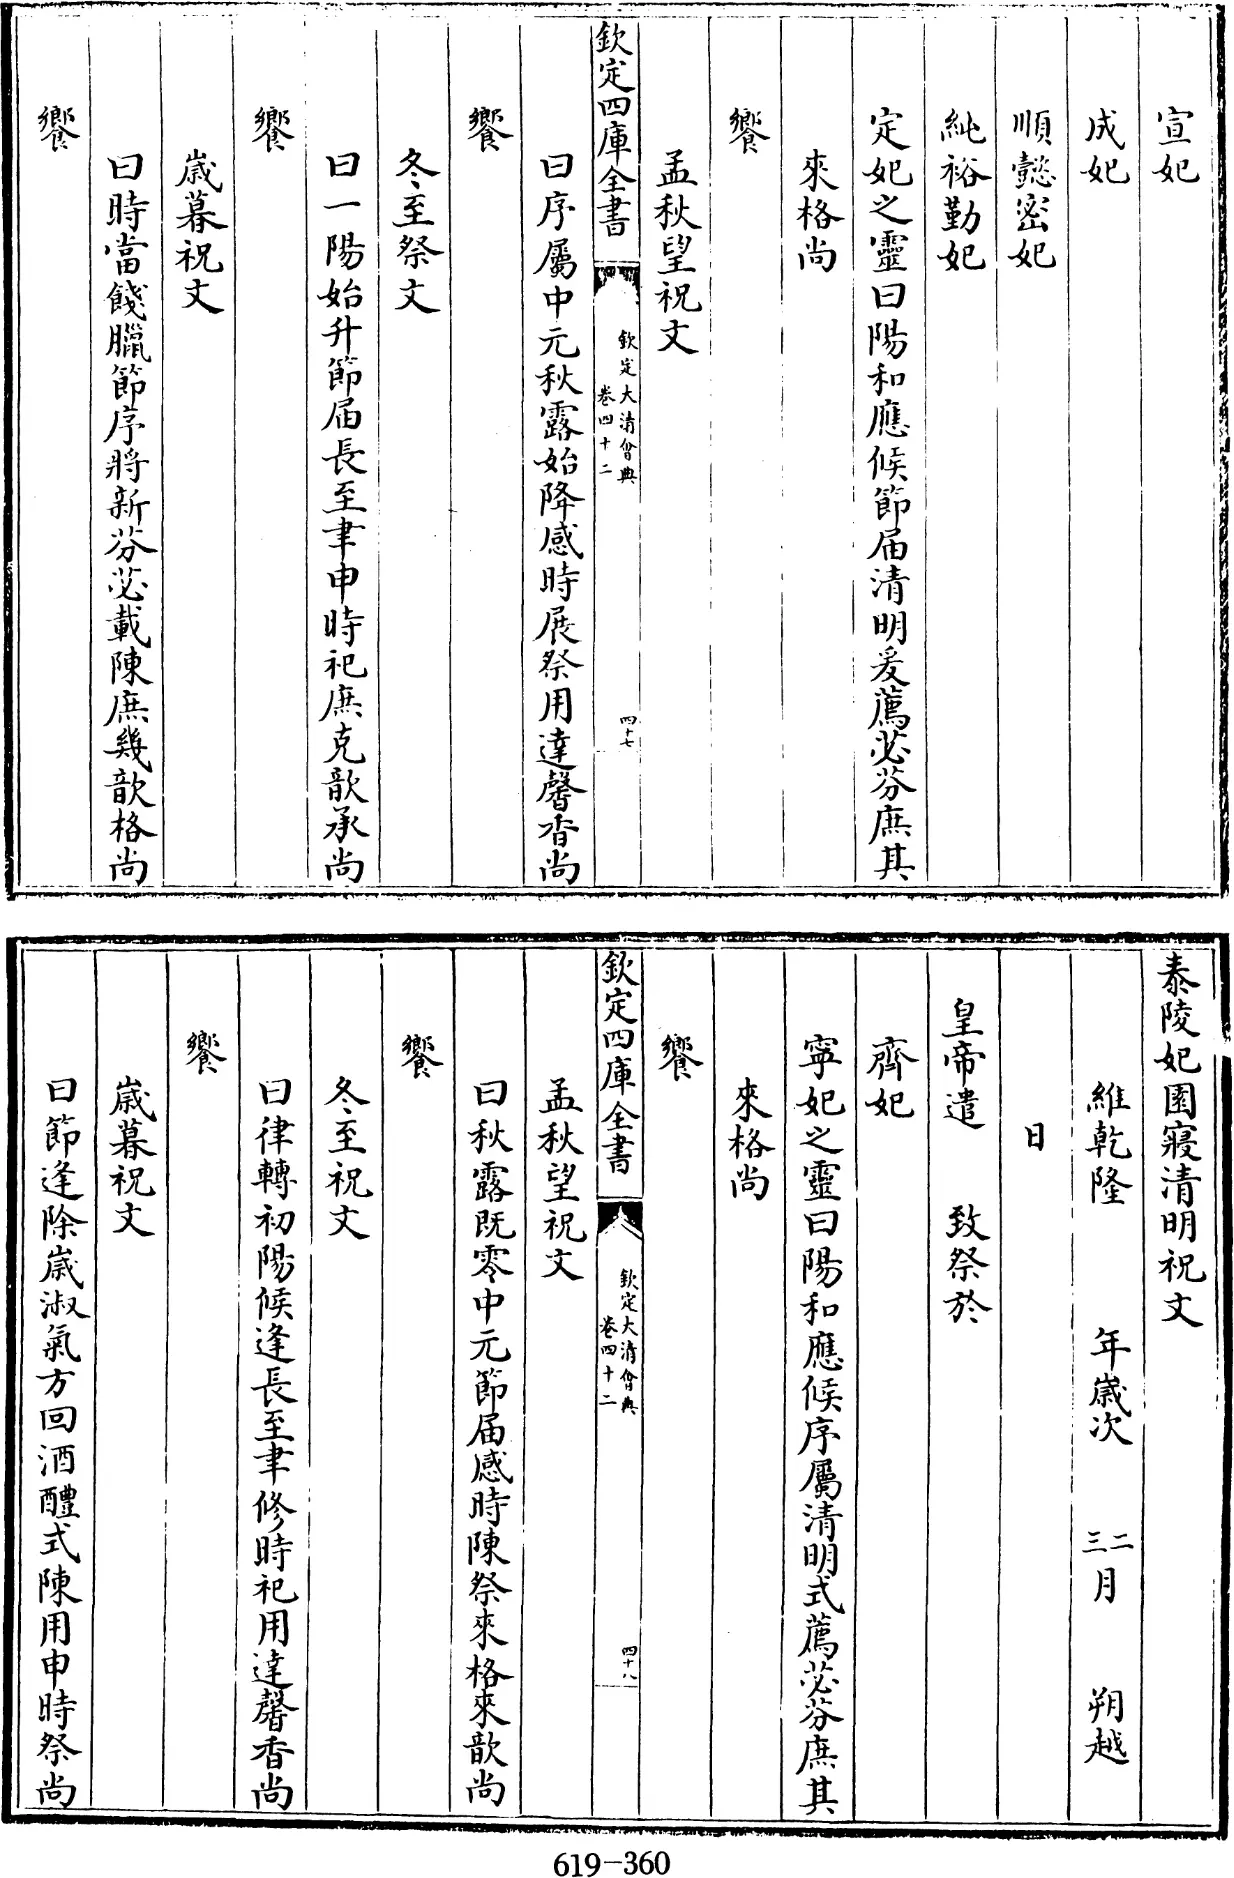 宣妃
成妃
順懿密妃
純裕勤妃
定妃之靈曰陽和應候節届清明爰薦苾芬庶其
來格尚
饗
孟秋望祝文
欽定四庫全書
欽定大清會典
卷四十二
四十七
曰序屬中元秋露始降感時展祭用達馨香尚
饗
冬至祭文
曰一陽始升節届長至聿申時祀庶克歆承尚
饗
歲暮祝文
曰時當餞臘節序將新芬苾載陳庶幾歆格尚
饗
泰陵妃園寢清明祝文
維乾隆 年歲次 二三月 朔越
日
皇帝遣 致祭於
齊妃
寧妃之靈曰陽和應候序屬清明式薦苾芬庶其
來格尚
饗
欽定四庫全書
欽定大清會典
卷四十二
四十八
孟秋望祝文
曰秋露既零中元節届感時陳祭來格來歆尚
饗
冬至祝文
曰律轉初陽候逢長至聿修時祀用達馨香尚
饗
歲暮祝文
曰節逢除歲淑氣方回酒醴式陳用申時祭尚
619-360